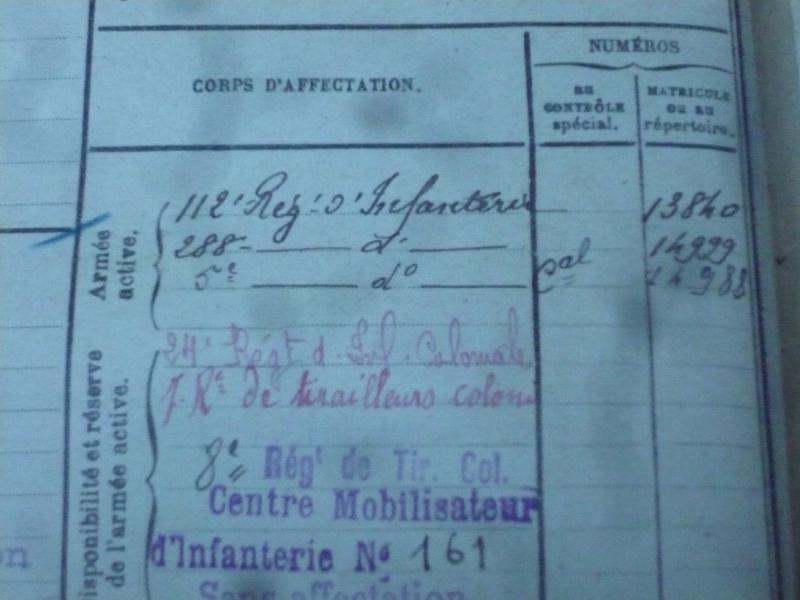 NUMÉROS
CORPS D'AFFECTATION.
au
CONTRÔLE
spécial.
MATRICULE
ou au
répertoire.
Armée
active.
112e Régt d'Infanterie 13840
288 — d° — 14929
5e — d° — cal
isponibilité et réserve
de l'armée active.
24e Régt d'Inf. Coloniale
7 Rt de tirailleurs colon
8e Régt de Tir. Col.
Centre Mobilisateur
d'Infanterie No 161
Sans affectation
on